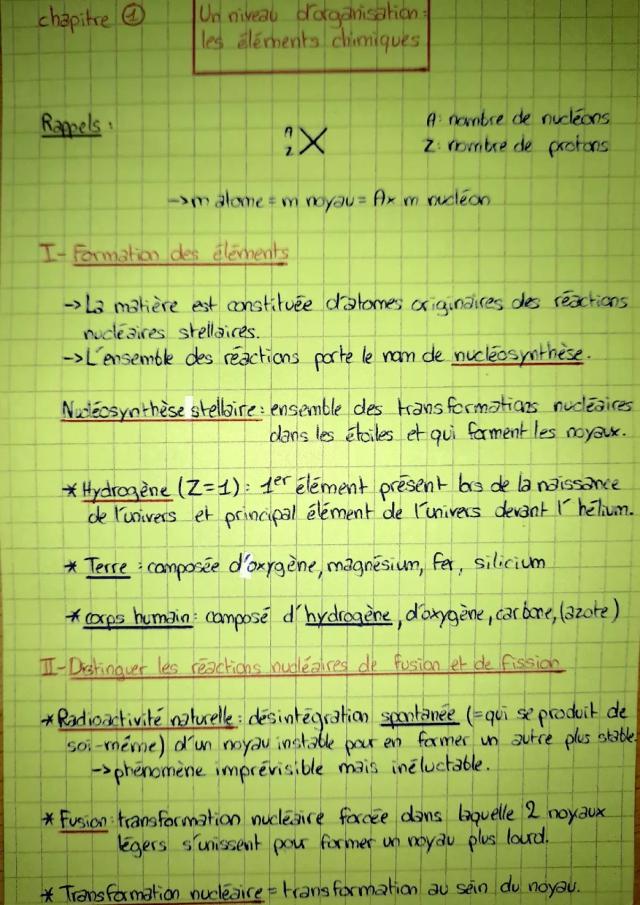 chapitre ①
Un niveau d'organisation :
les éléments chimiques
Rappels :
A
Z X
A : nombre de nucléons
Z : nombre de protons
→ m atome = m noyau = A x m nucléon
I - Formation des éléments
→ La matière est constituée d'atomes originaires des réactions
nucléaires stellaires.
→ L'ensemble des réactions porte le nom de nucléosynthèse.
Nucléosynthèse stellaire : ensemble des transformations nucléaires
dans les étoiles et qui forment les noyaux.
* Hydrogène (Z=1) : 1er élément présent lors de la naissance
de l'univers et principal élément de l'univers devant l'hélium.
* Terre : composée d'oxygène, magnésium, fer, silicium
* corps humain : composé d'hydrogène, d'oxygène, carbone, (azote)
II - Distinguer les réactions nucléaires de fusion et de fission
* Radioactivité naturelle : désintégration spontanée (= qui se produit de
soi-même) d'un noyau instable pour en former un autre plus stable.
→ phénomène imprévisible mais inéluctable.
* Fusion : transformation nucléaire forcée dans laquelle 2 noyaux
légers s'unissent pour former un noyau plus lourd.
* Transformation nucléaire = transformation au sein du noyau.